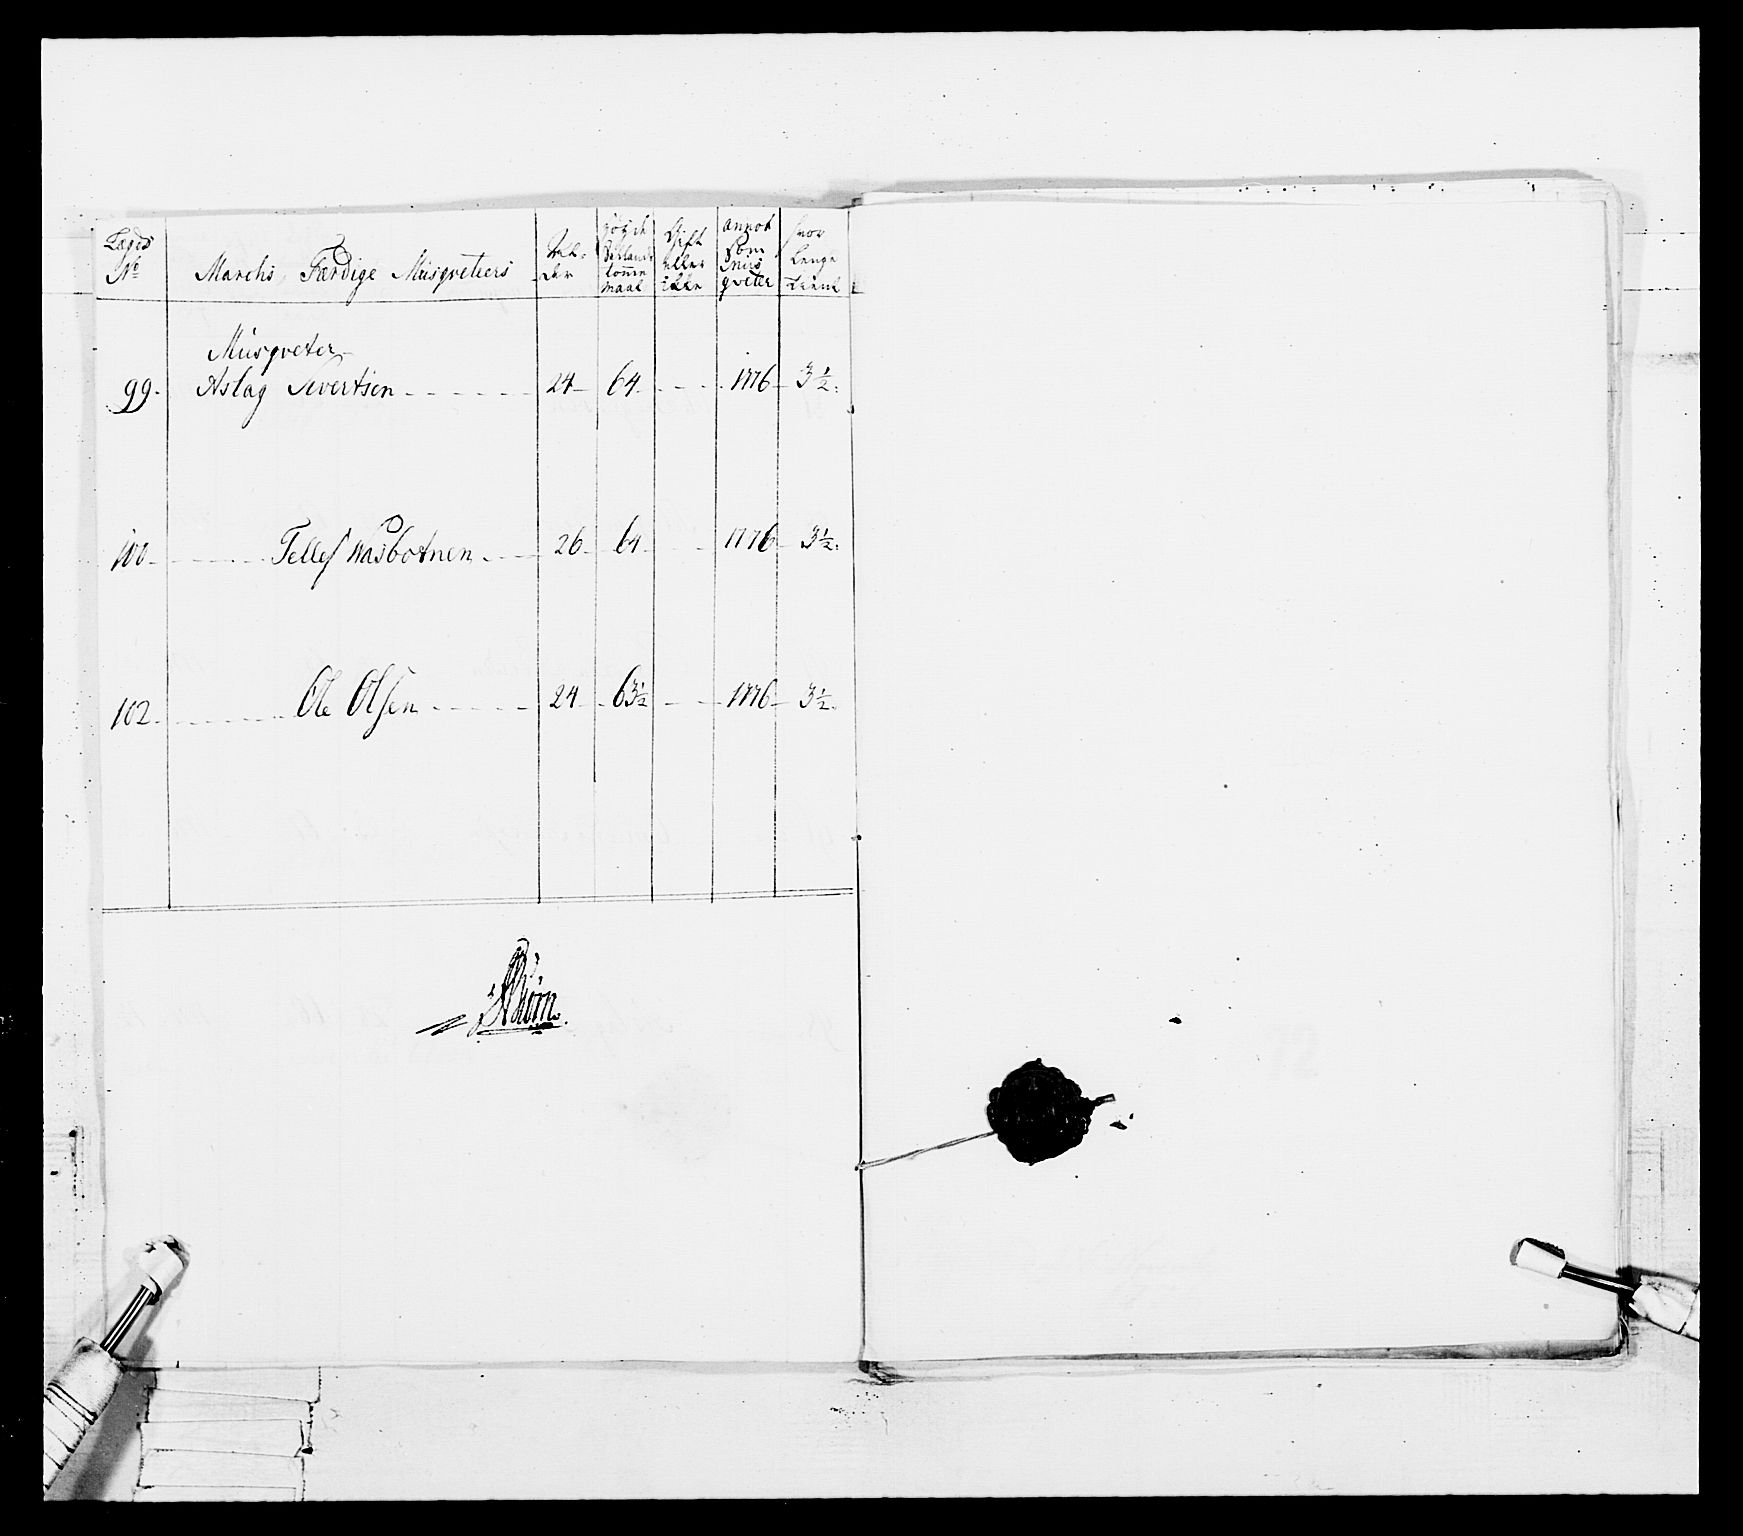 Lægds No Marchs Færdige Müsqveteers Al- der Høyde Siellands tomme maal Gift eller ikke annot som Müs qveter hvor lenge tient
Müsqveter
99. Aslag Sivertsen 24 64 1776 3 1/2
100 Tellef Waasbotnen 26 64 1776 3 1/2
102 Ole Olsen 24 63 1/2 1776 3 1/2